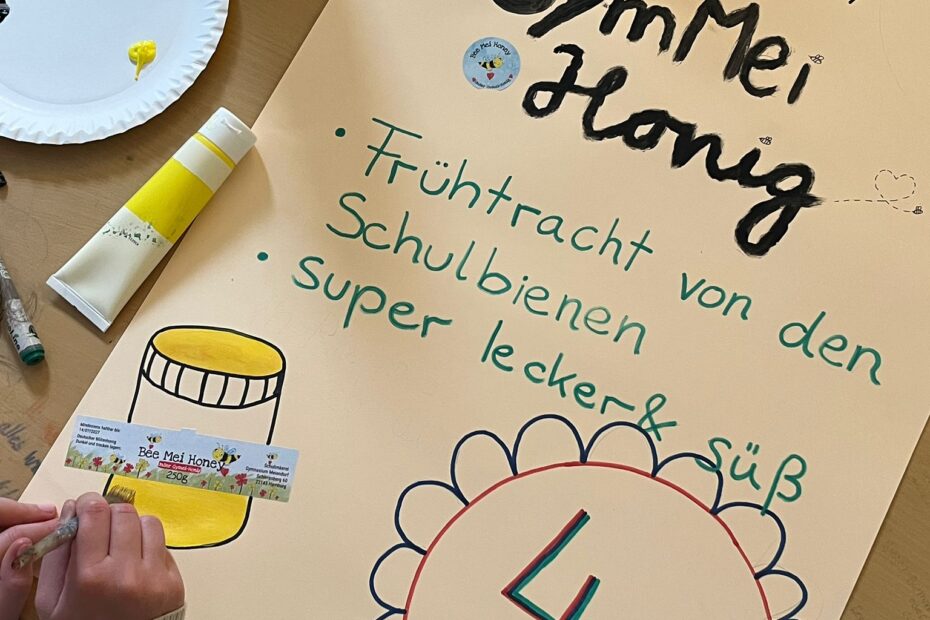 GymMei
Honig
Bee Mei Honey
• Frühtracht von den
Schulbienen
• super lecker & süß
Mindestens haltbar bis
14/07/2027
Deutscher Blütenhonig
Dunkel und trocken lagern.
Bee Mei Honey
250g
Schulimkerei
Gymnasium Meiendorf
Hamburg
4